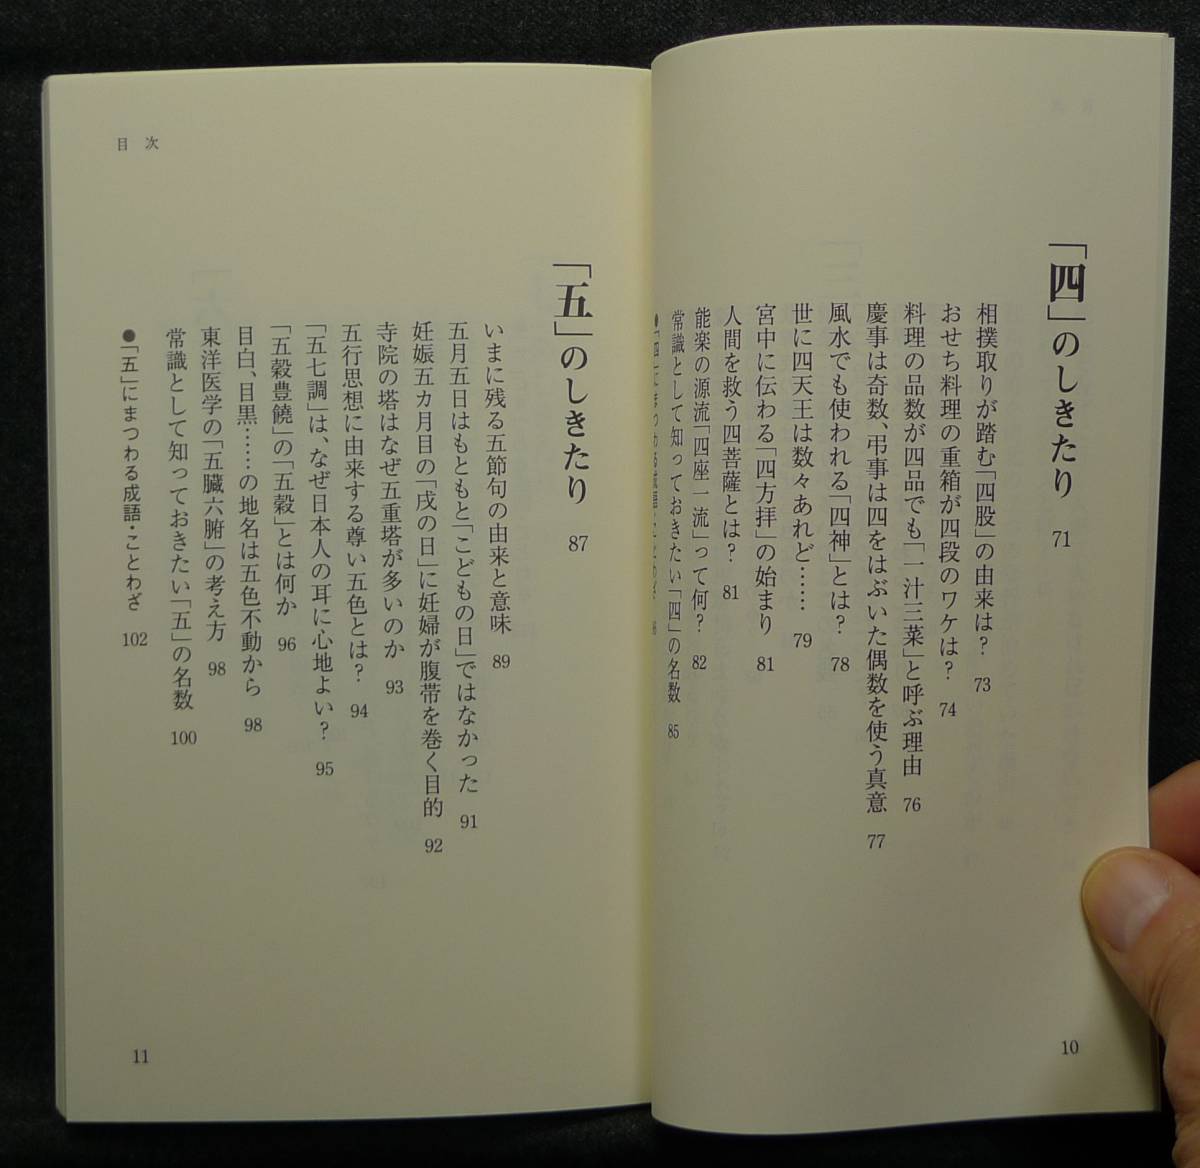 「四」のしきたり 71
相撲取りが踏む「四股」の由来は? 73
おせち料理の重箱が四段のワケは? 74
料理の品数が四品でも「一汁三菜」と呼ぶ理由 76
慶事は奇数、弔事は四をはぶいた偶数を使う真意 77
風水でも使われる「四神」とは? 78
世に四天王は数々あれど…… 79
宮中に伝わる「四方拝」の始まり 81
人間を救う四菩薩とは? 81
能楽の源流「四座一流」って何? 82
常識として知っておきたい「四」の名数 85
●「四」にまつわる成語・ことわざ
10
目次
「五」のしきたり 87
いまに残る五節句の由来と意味 89
五月五日はもともと「こどもの日」ではなかった 91
妊娠五カ月目の「戌の日」に妊婦が腹帯を巻く目的 92
寺院の塔はなぜ五重塔が多いのか 93
五行思想に由来する尊い五色とは? 94
「五七調」は、なぜ日本人の耳に心地よい? 95
「五穀豊饒」の「五穀」とは何か 96
目白、目黒……の地名は五色不動から 98
東洋医学の「五臓六腑」の考え方 98
常識として知っておきたい「五」の名数 100
●「五」にまつわる成語・ことわざ 102
11